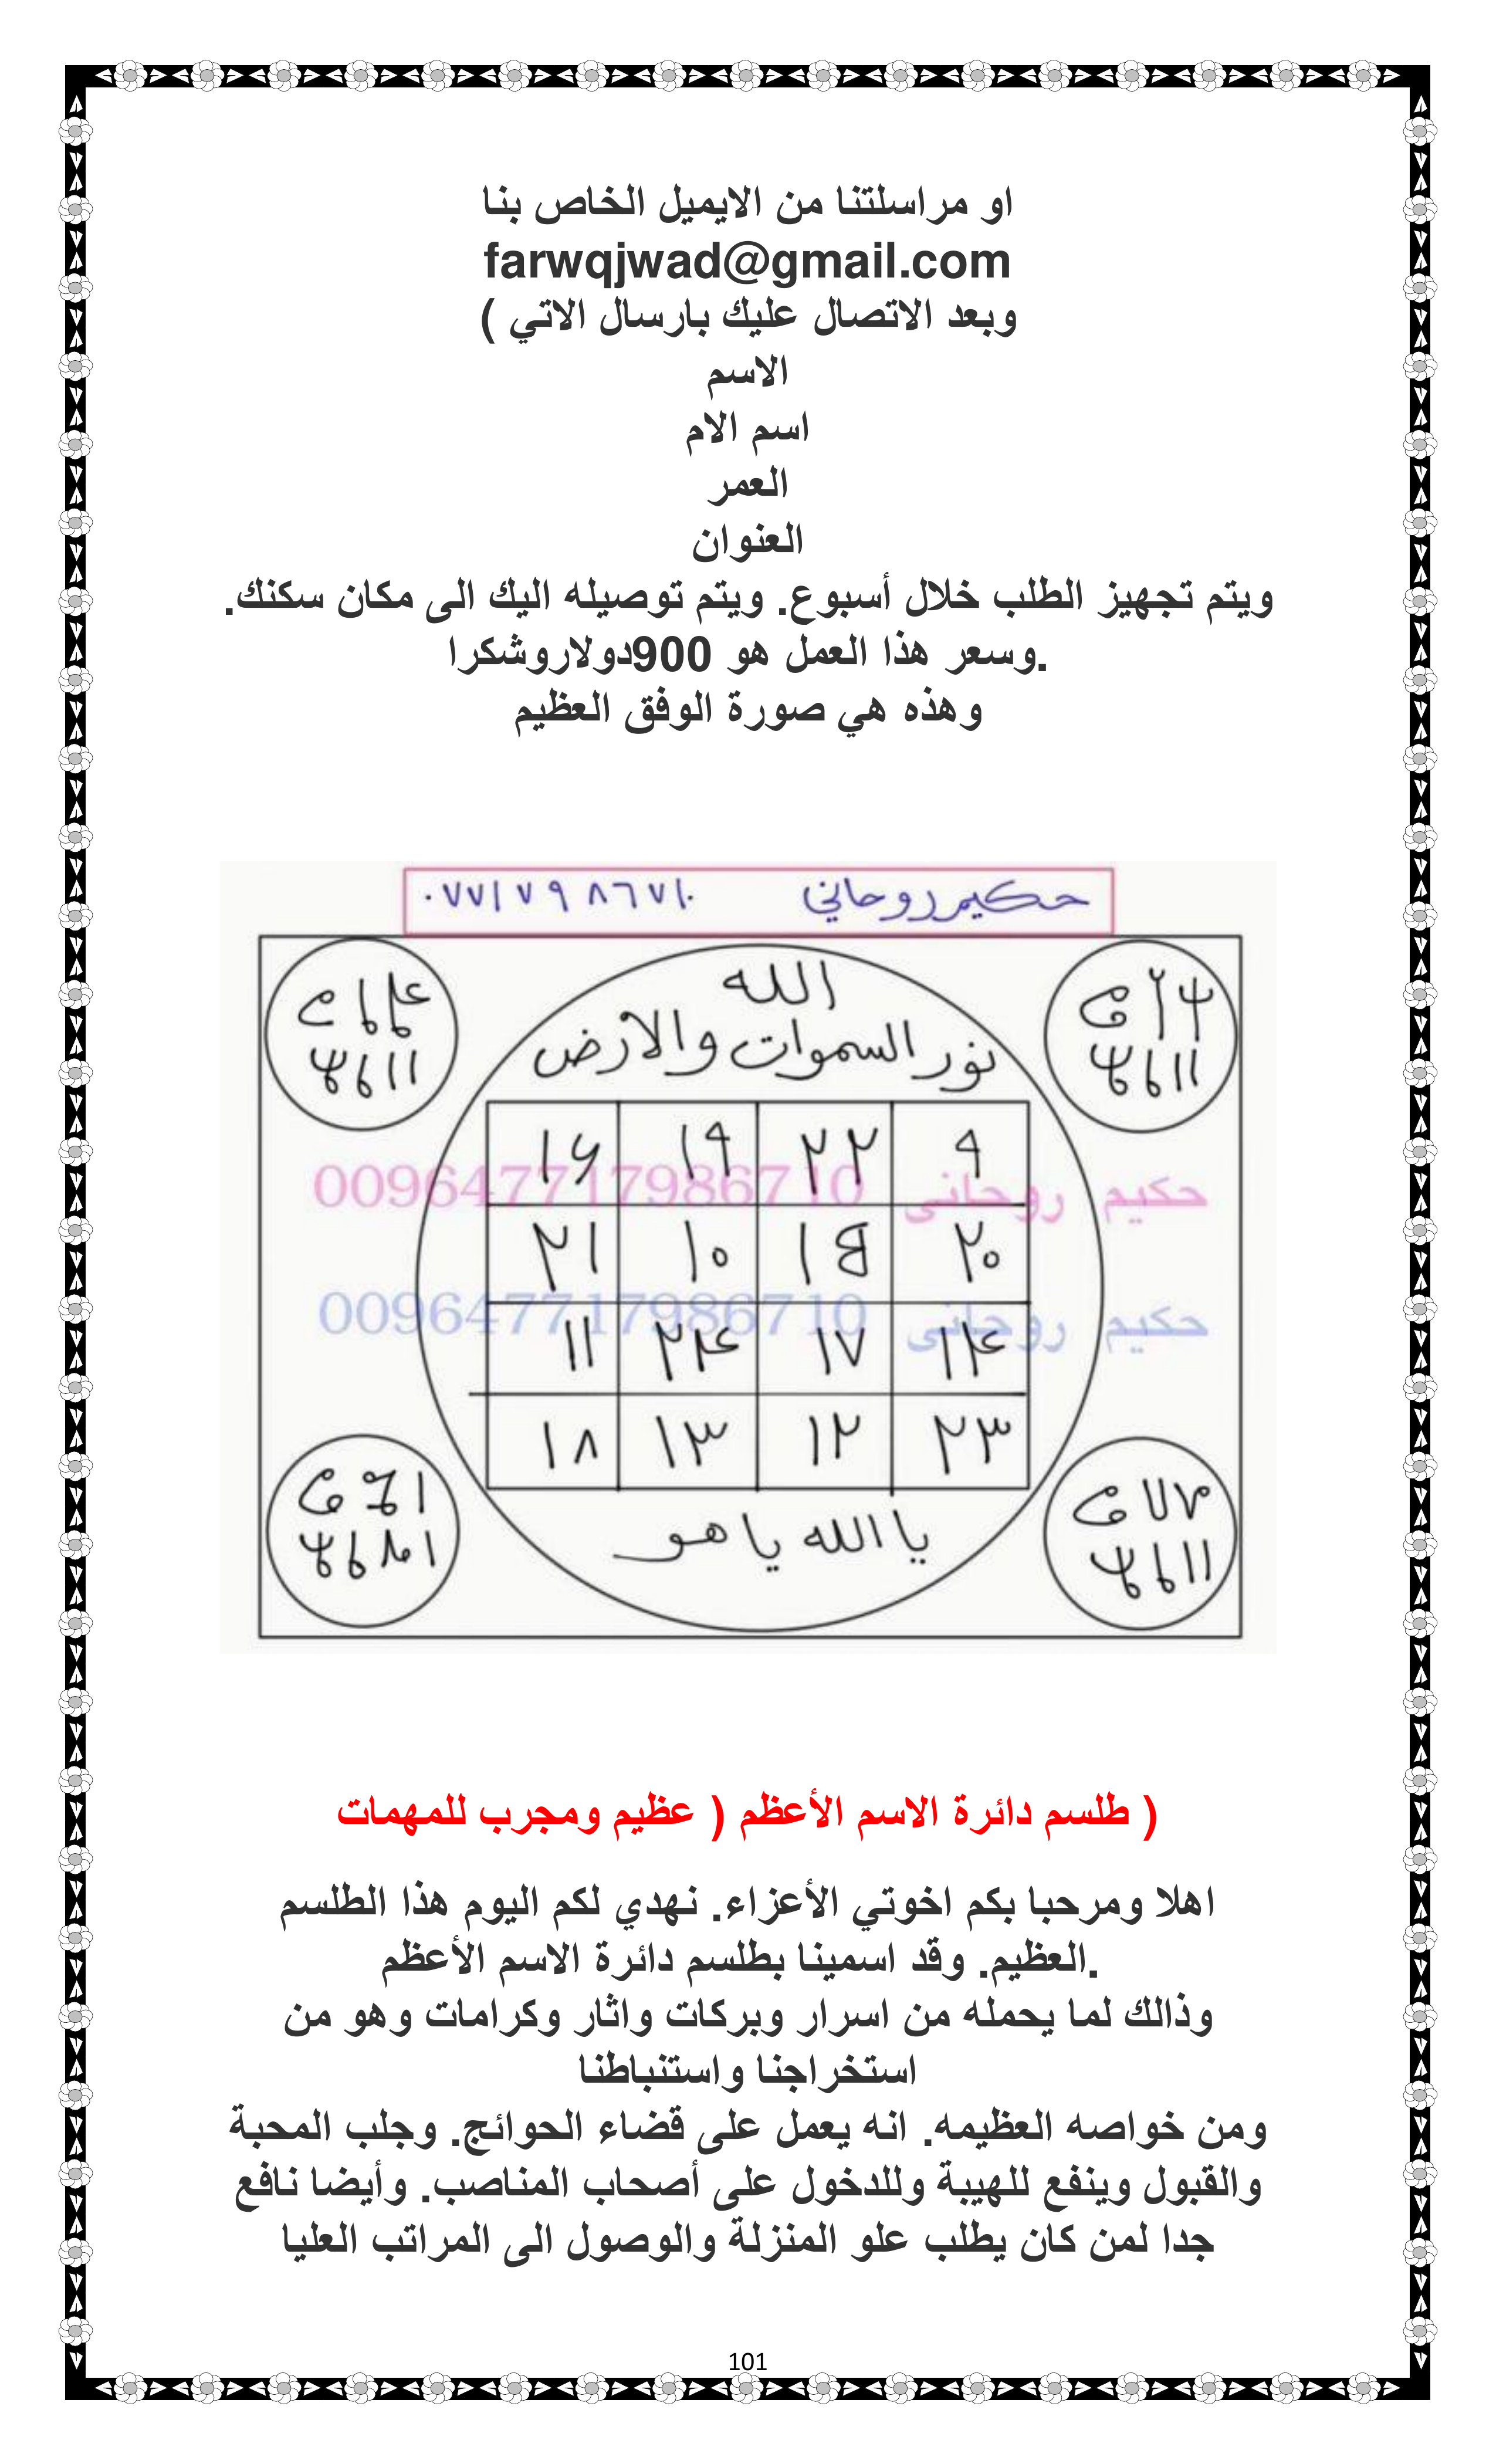 او مراسلتنا من الايميل الخاص بنا
farwqjwad@gmail.com
وبعد الاتصال عليك بارسال الاتي )
الاسم
اسم الام
العمر
العنوان
ويتم تجهيز الطلب خلال أسبوع. ويتم توصيله اليك الى مكان سكنك.
.وسعر هذا العمل هو 900دولاروشكرا
وهذه هي صورة الوفق العظيم
حكيم روحاني ٠٧٧١٧٩٨٦٧١٠
الله
نور السموات والارض
١٦ ١٩ ٢٢ ٩
حكيم روحاني 009647717986710
٢١ ١٠ ١٥ ٢٠
حكيم روحاني 009647717986710
١١ ٢٤ ١٧ ١٤
١٨ ١٣ ١٢ ٢٣
يا الله يا هو
( طلسم دائرة الاسم الأعظم ( عظيم ومجرب للمهمات
اهلا ومرحبا بكم اخوتي الأعزاء. نهدي لكم اليوم هذا الطلسم
.العظيم. وقد اسمينا بطلسم دائرة الاسم الأعظم
وذالك لما يحمله من اسرار وبركات واثار وكرامات وهو من
استخراجنا واستنباطنا
ومن خواصه العظيمه. انه يعمل على قضاء الحوائج. وجلب المحبة
والقبول وينفع للهيبة وللدخول على أصحاب المناصب. وأيضا نافع
جدا لمن كان يطلب علو المنزلة والوصول الى المراتب العليا
101